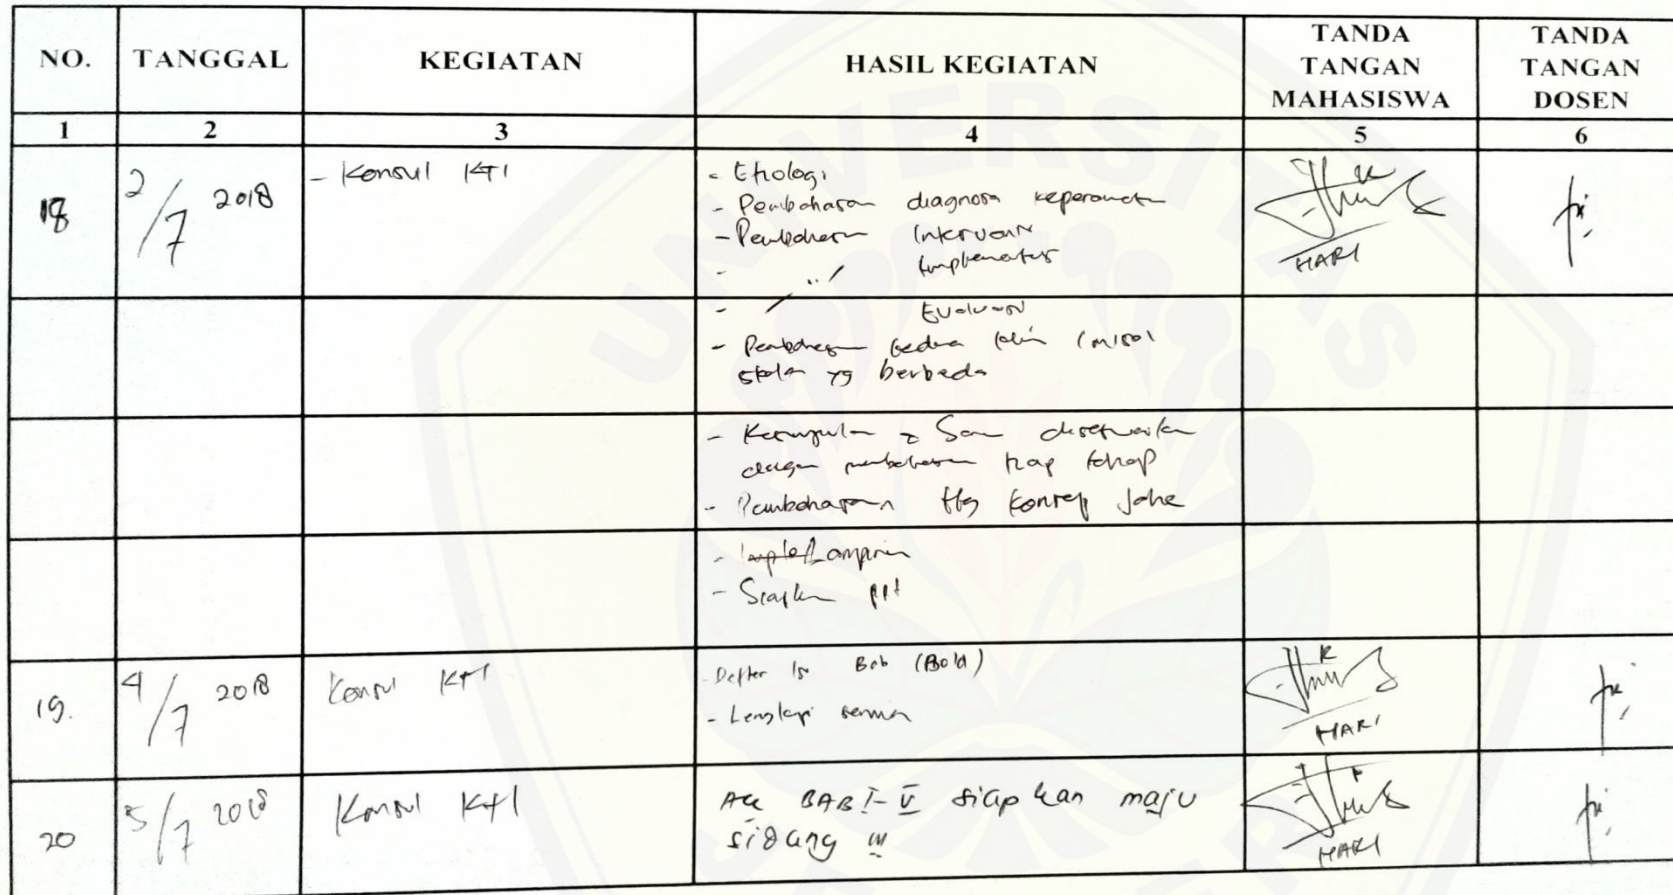 NO. TANGGAL KEGIATAN HASIL KEGIATAN TANDA TANGAN MAHASISWA TANDA TANGAN DOSEN
1 2 3 4 5 6
18 2/7 2018 - Konsul KTI - Etiologi
- Pembahasan diagnosa keperawatan
- Pembahasan Intervensi
- " Implementasi
HARI
- Evaluasi
- Pembahasan kedua klien (misal
skala yg berbeda
- Kesimpulan Saran disesuaikan
dengan pembahasan tiap tahap
- Pembahasan ttg konsep Jahe
- Lampiran
- Siapkan ppt
19. 4/7 2018 Konsul KTI - Daftar Isi Bab (Bold)
- Lengkapi semua
HARI
20 5/7 2018 Konsul KTI Acc BAB I-V siapkan maju
sidang !!!
HARI
UNIVERSITAS